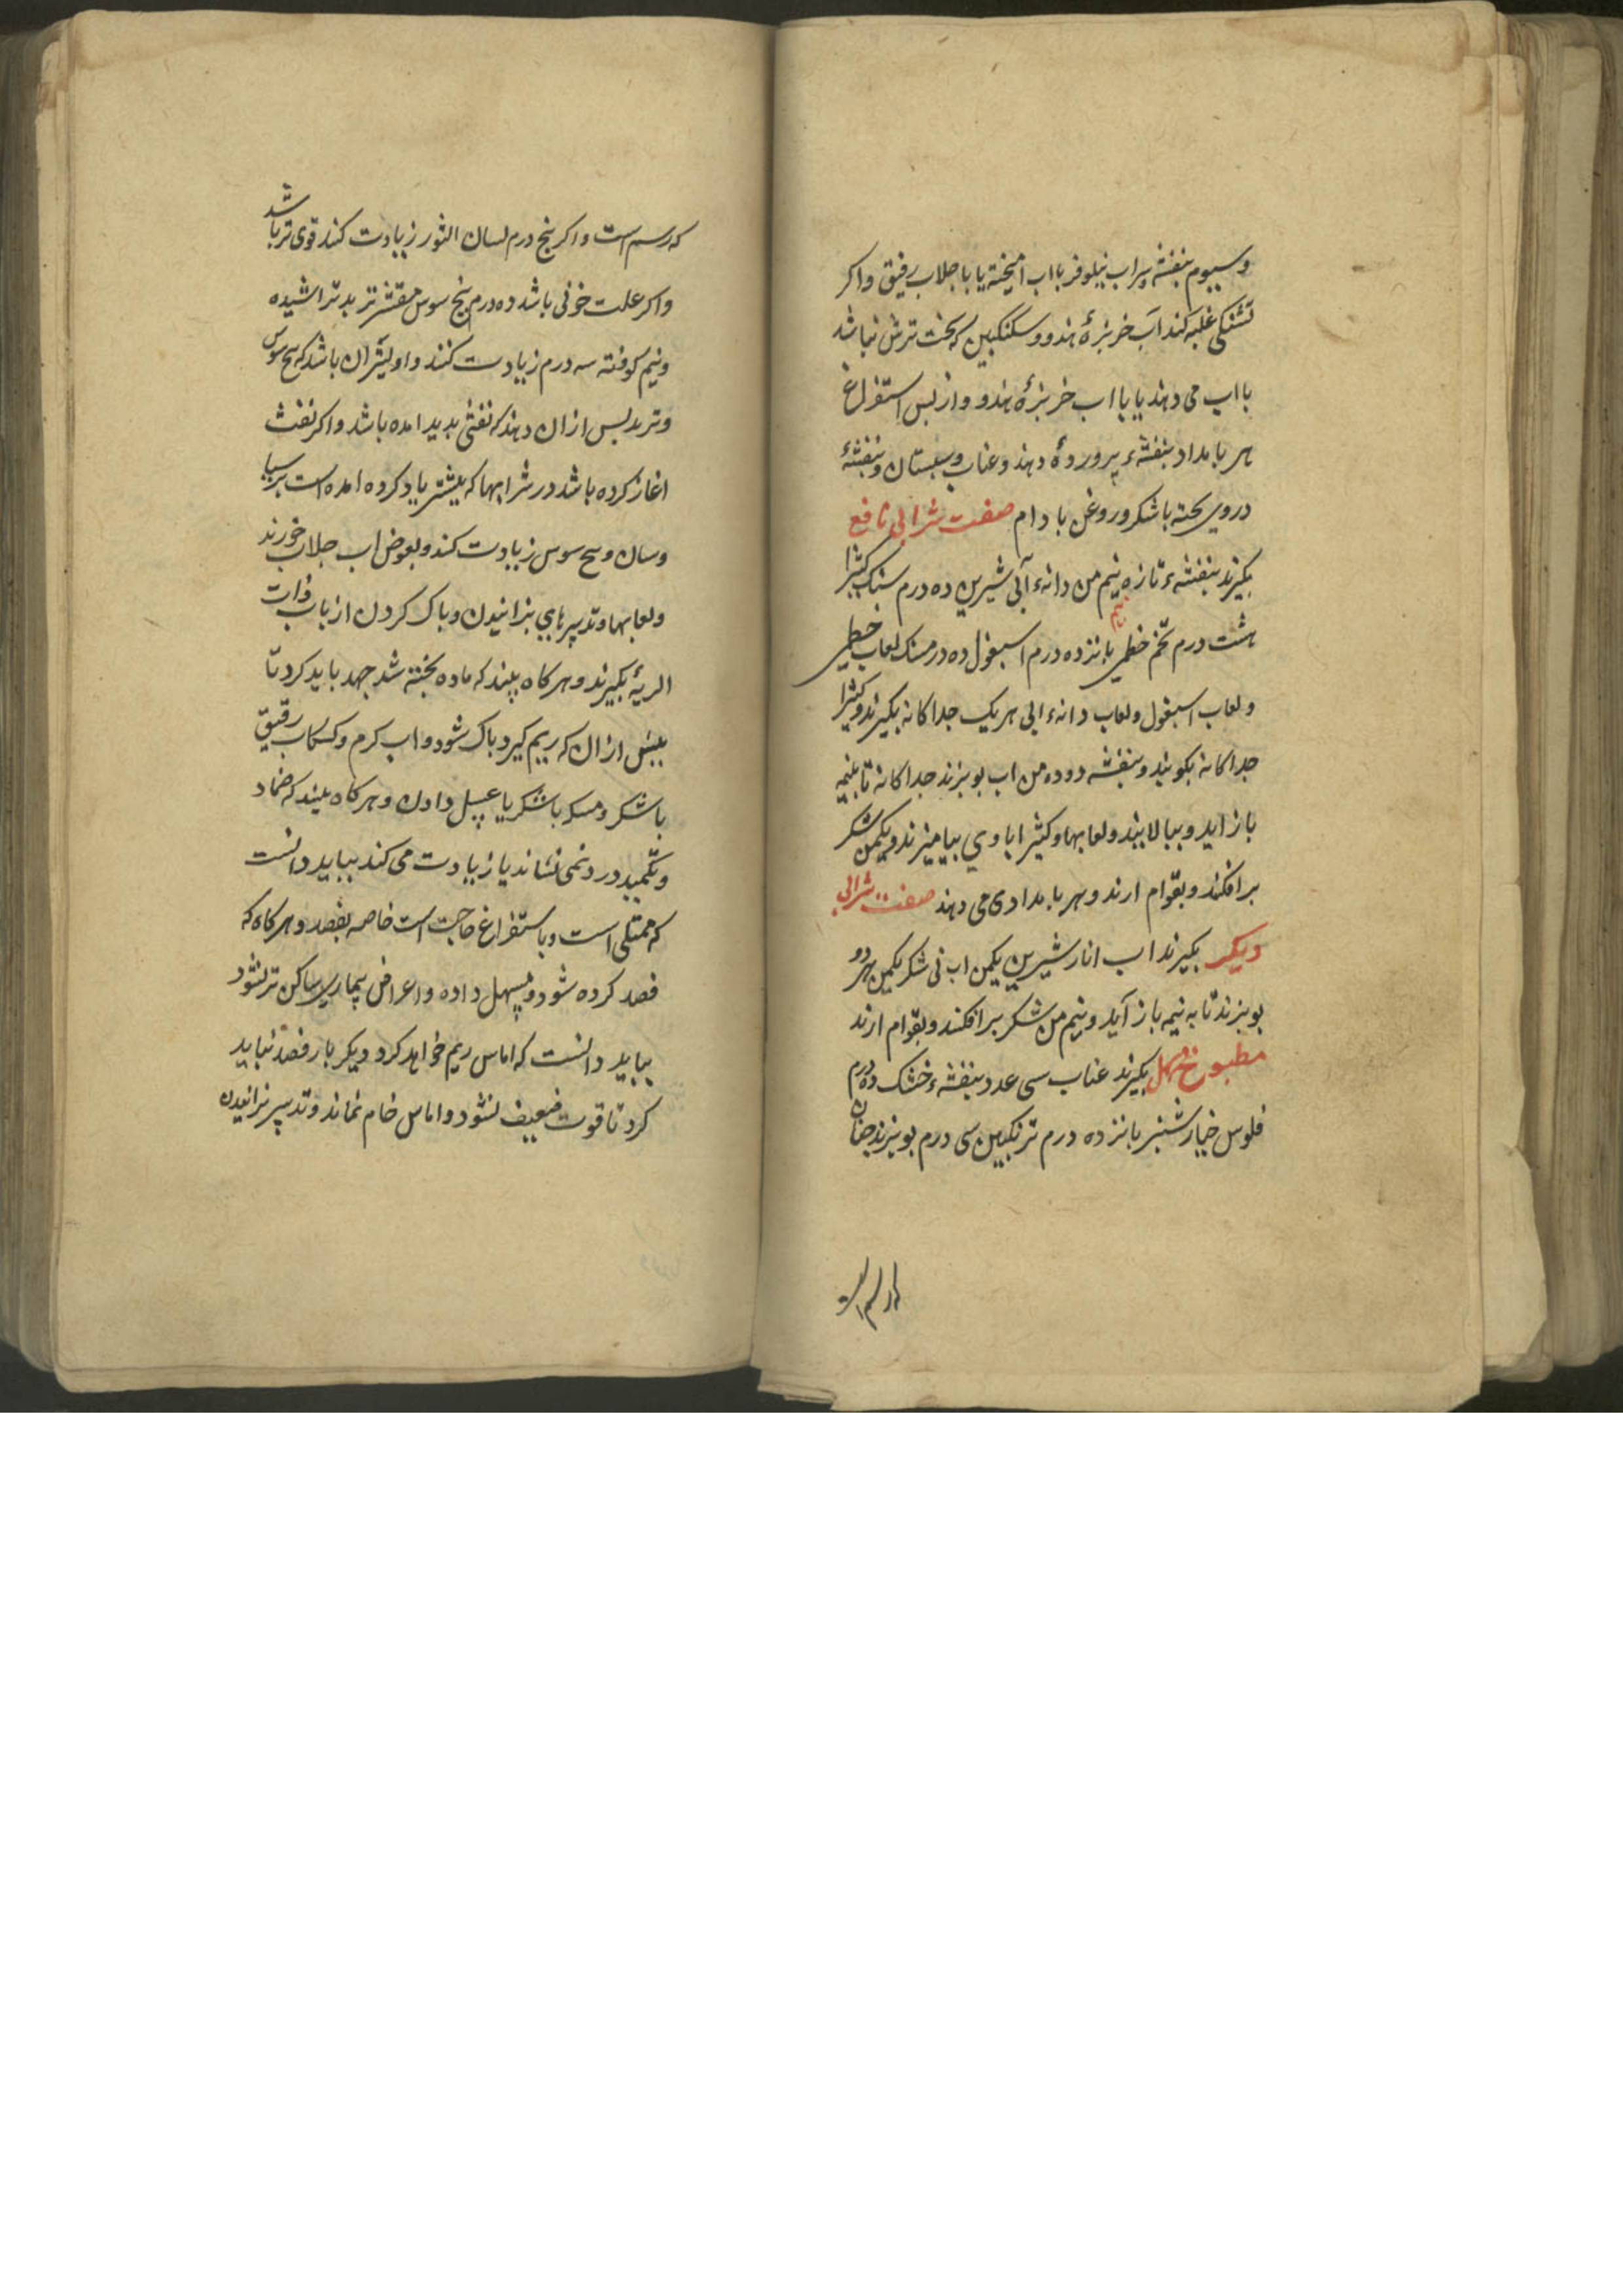 وسیوم بنفشه پراب نیلوفر بااب امیخته یا باجلاب رقیق واکر
تشنکی غلبه کند آب خربزهٔ هندو و سکنکبین که سخت ترش نباشد
بااب می دهند یا بااب خربزهٔ هندو وازبس استفراغ
هر بامداد بنفشهء پروردهٔ دهند و عناب وسبستان و بنفشهٔ
دروی بخته باشکر وروغن بادام صفت شرابی نافع
بکیرند بنفشهء تازه نیم من دانهء آبی شیرین ده درم سنک کثیرا
هشت درم تخم خطمی بانزده درم اسبغول ده درمسنک لعاب خطمی
ولعاب اسبغول ولعاب دانهء ابی هریک جداکانه بکیرند وکثیرا
جداکانه بکوبند وبنفشه دوده من اب بوبزند جداکانه تابنیمه
بازاید وببالایند ولعابها وکثیرا باوي بیامیزند ویکمن شکر
برافکنند وبقوام ارند وهر بامدادی می دهند صفت شرابی
دیکر بکیرند اب انار شیرین یکمن اب نی شکر یکمن هردو
بوبزند تا به نیمه باز آید ونیم من شکر برافکنند وبقوام ارند
مطبوخ مسهل بکیرند عناب سی عدد بنفشهء خشک ده درم
فلوس خیارشنبر بانزده درم ترنکبین سی درم بوبزند جنان
که رسم است
که رسم است واکر بنج درم لسان الثور زیادت کند قوی تر باشد
واکر علت خونی باشد ده درم بنج سوس مقشر تربد تراشیده
ونیم کوفته سه درم زیادت کنند واولیتران باشد که بیخ سوس
وتربد بس ازان دهند که نفثی بدید امده باشد واکر نفث
اغاز کرده باشد در شرابها که بیشتر یاد کرده امده است برسیا
وسان وبیخ سوس زیادت کند وبعوض اب جلاب خورند
ولعابها وتدبیرهاي بزانیدن وباک کردن از باب ذات
الریهٔ بکیرند وهرکاه بیند که ماده بخته شد جهد باید کرد تا
بیش ازان که ریم کیرد باک شود واب کرم وکسکاب رقیق
باشکر ومسکه باشکر یا عسل دادن وهرکاه بیند که ضماد
وتکمید درد نمی نشاند یا زیادت می کند بباید دانست
که ممتلی است وباستفراغ حاجت است خاصه بفصد وهرکاه که
فصد کرده شود ومسهل داده واعراض بیماری ساکن تر نشود
بباید دانست که اماس ریم خواهد کرد ودیکر بار فصد نباید
کرد تا قوت ضعیف نشود واماس خام نماند وتدبیر بزانیدن